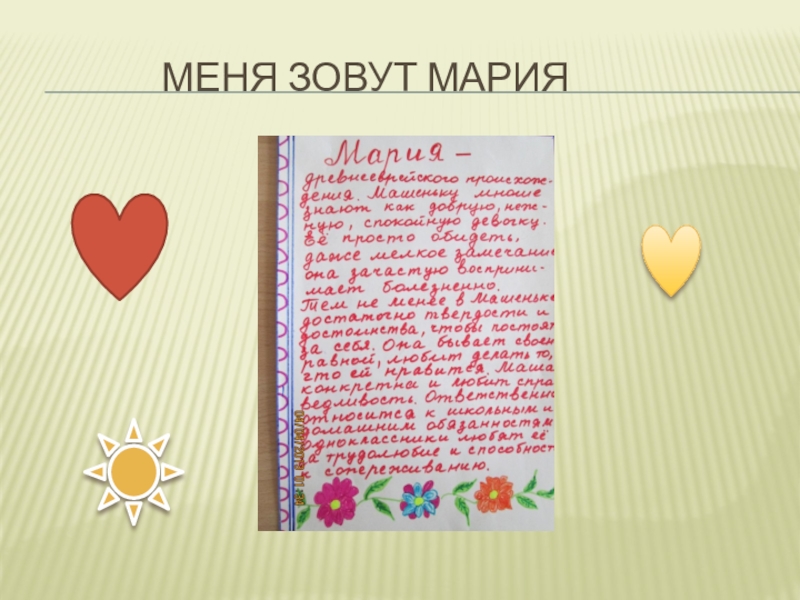 МЕНЯ ЗОВУТ МАРИЯ
Мария –
древнееврейского происхож-
дения. Машеньку многие
знают как добрую, неж-
ную, спокойную девочку.
Её просто обидеть,
даже мелкое замечание
она зачастую восприни-
мает болезненно.
Тем не менее в Машеньке
достаточно твердости и
достоинства, чтобы постоят
за себя. Она бывает своен
равной, любит делать то,
что ей нравится. Маша
конкретна и любит спра
ведливость. Ответственн
относится к школьным и
домашним обязанностям
одноклассники любят её
за трудолюбие и способност
к сопереживанию.